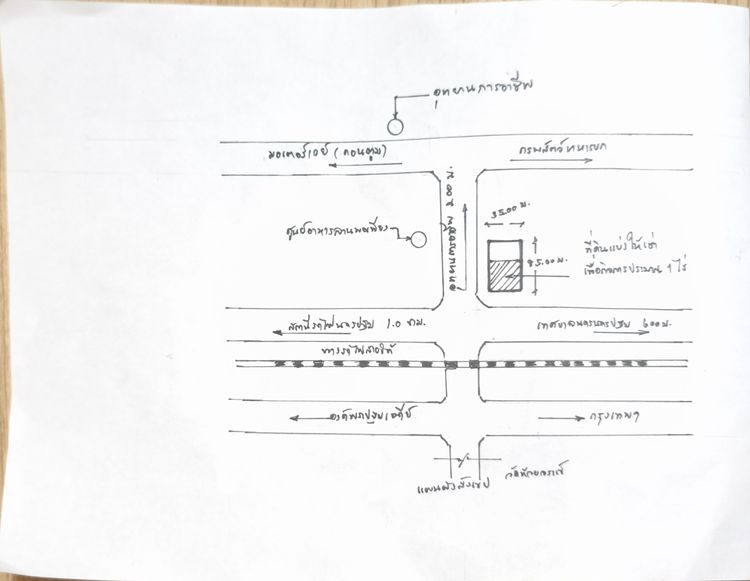 อุทยานการอาชีพ
มอเตอร์เวย์ (ดอนตูม)
กรมสัตว์ทหารบก
35.00 ม.
ศูนย์อาหารลานพอเพียง
85.00 ม.
ที่ดินแบ่งให้เช่า
เพื่อกิจการประมาณ 1 ไร่
สถานีรถไฟนครปฐม 1.0 กม.
เทศบาลนครนครปฐม 600 ม.
ทางรถไฟสายใต้
องค์พระปฐมเจดีย์
กรุงเทพฯ
แผนผังสังเขป